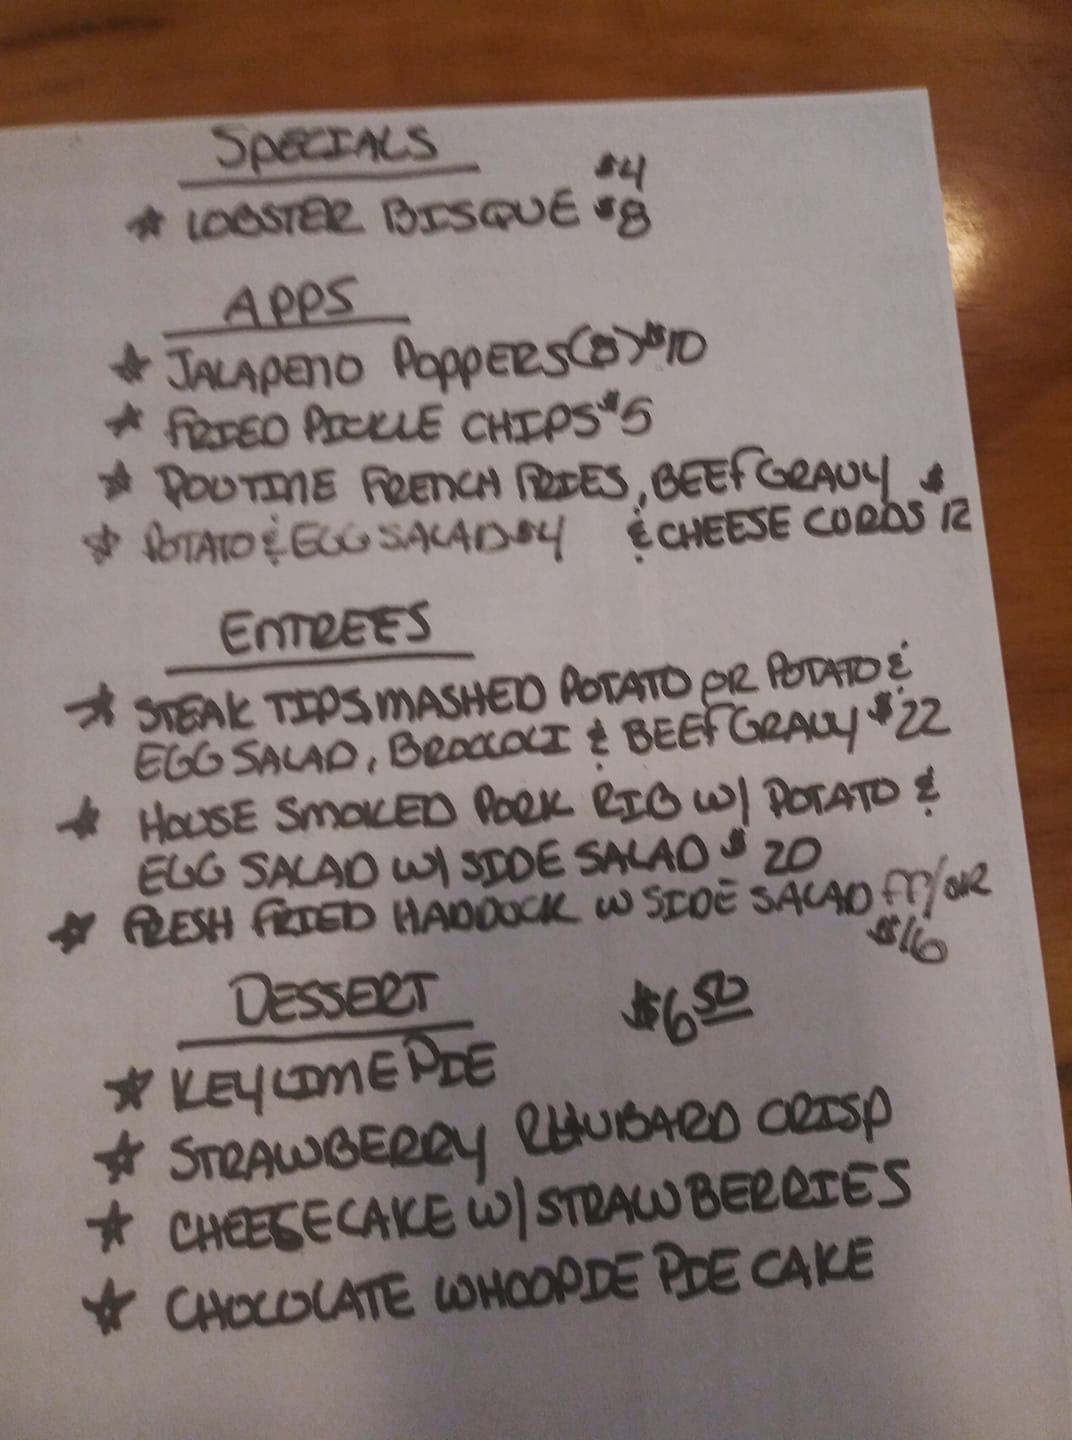 SPECIALS
$4
★ LOBSTER BISQUE $8
APPS
★ JALAPENO POPPERS (8) $10
★ FRIED PICKLE CHIPS $5
★ POUTINE FRENCH FRIES, BEEF GRAVY $
& CHEESE CORDS 12
★ POTATO & EGG SALAD $4
ENTREES
★ STEAK TIPS, MASHED POTATO OR POTATO &
EGG SALAD, BROCCOLI & BEEF GRAVY $22
★ HOUSE SMOKED PORK RIB W/ POTATO &
EGG SALAD W/ SIDE SALAD $20
★ FRESH FRIED HADDOCK W SIDE SALAD FF/OR
$16
DESSERT $6.50
★ KEY LIME PIE
★ STRAWBERRY RHUBARD CRISP
★ CHEESECAKE W/ STRAWBERRIES
★ CHOCOLATE WHOOPIE PIE CAKE